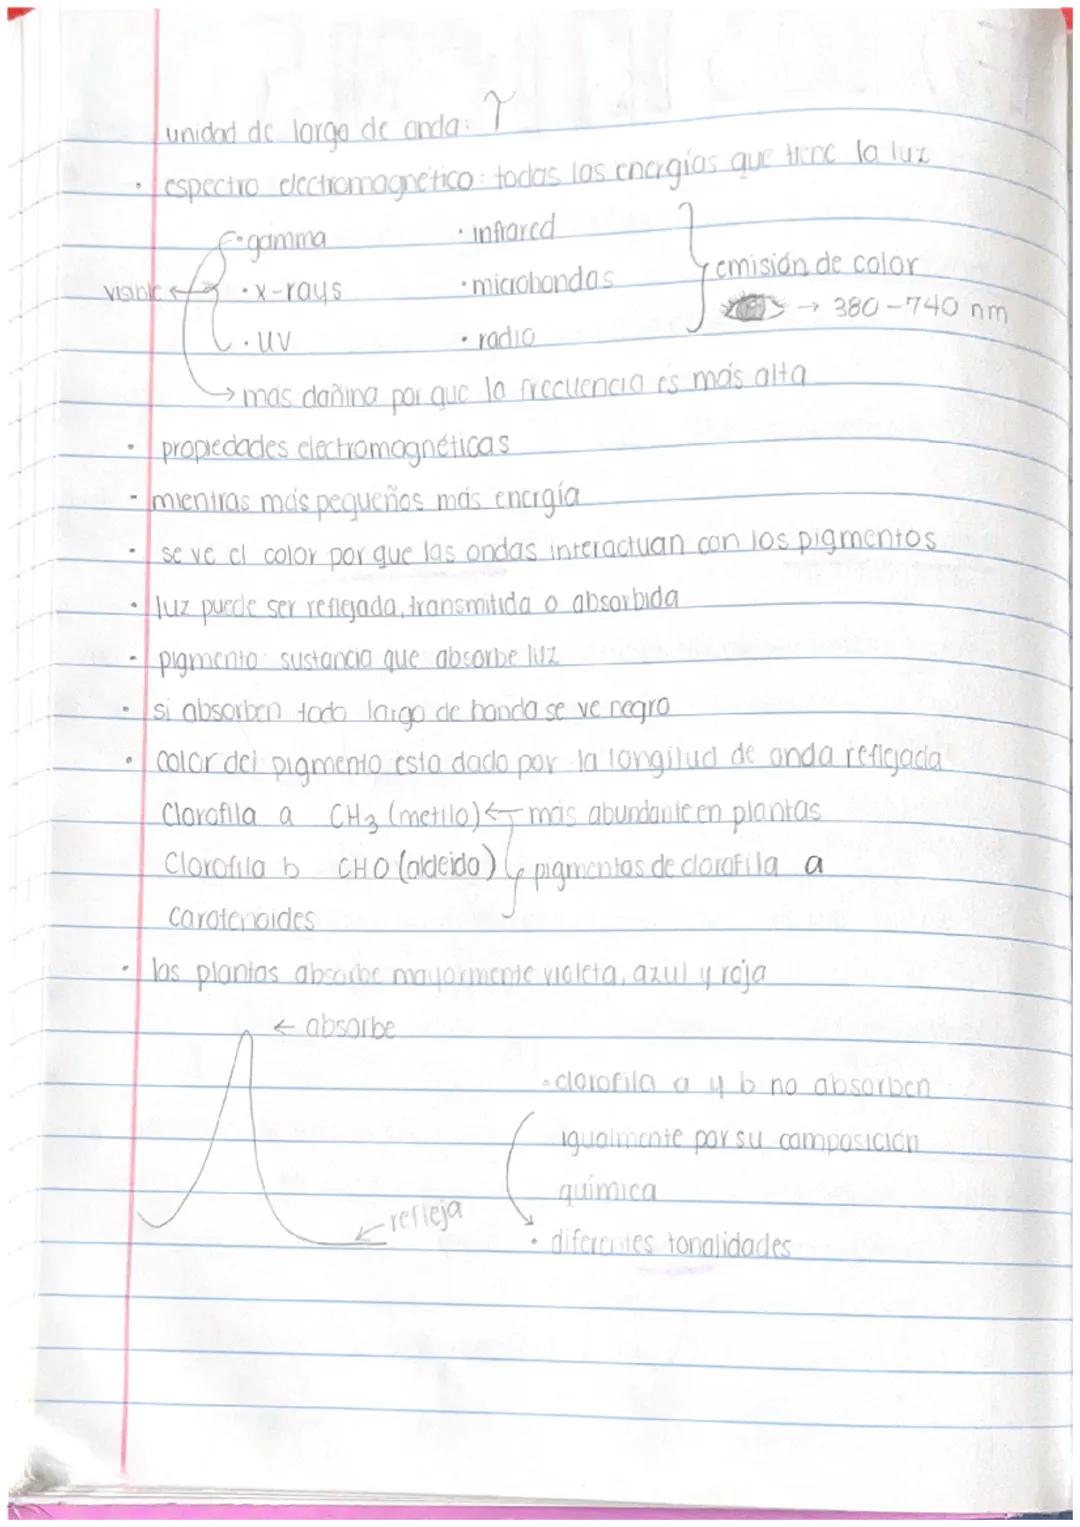 unidad de largo de onda: ϒ
• espectro electromagnético: todas las energías que tiene la luz
• gamma • infrared
visible • x-rays • microhondas emisión de color
→ 380-740 nm
• UV • radio
→ mas dañina por que la frecuencia es más alta
• propiedades electromagnéticas
• mientras más pequeños más energía
• se ve el color por que las ondas interactuan con los pigmentos
• luz puede ser reflejada, transmitida o absorbida
• pigmento: sustancia que absorbe luz
• si absorben todo largo de banda se ve negro
• color del pigmento esta dado por la longitud de onda reflejada
Clorofila a CH3 (metilo) ← más abundante en plantas
Clorofila b CHO (aldeido) pigmentos de clorofila a
Carotenoides
• las plantas absorbe mayormente violeta, azul y roja
← absorbe
• clorofila a y b no absorben
igualmente por su composición
química
← refleja
• diferentes tonalidades